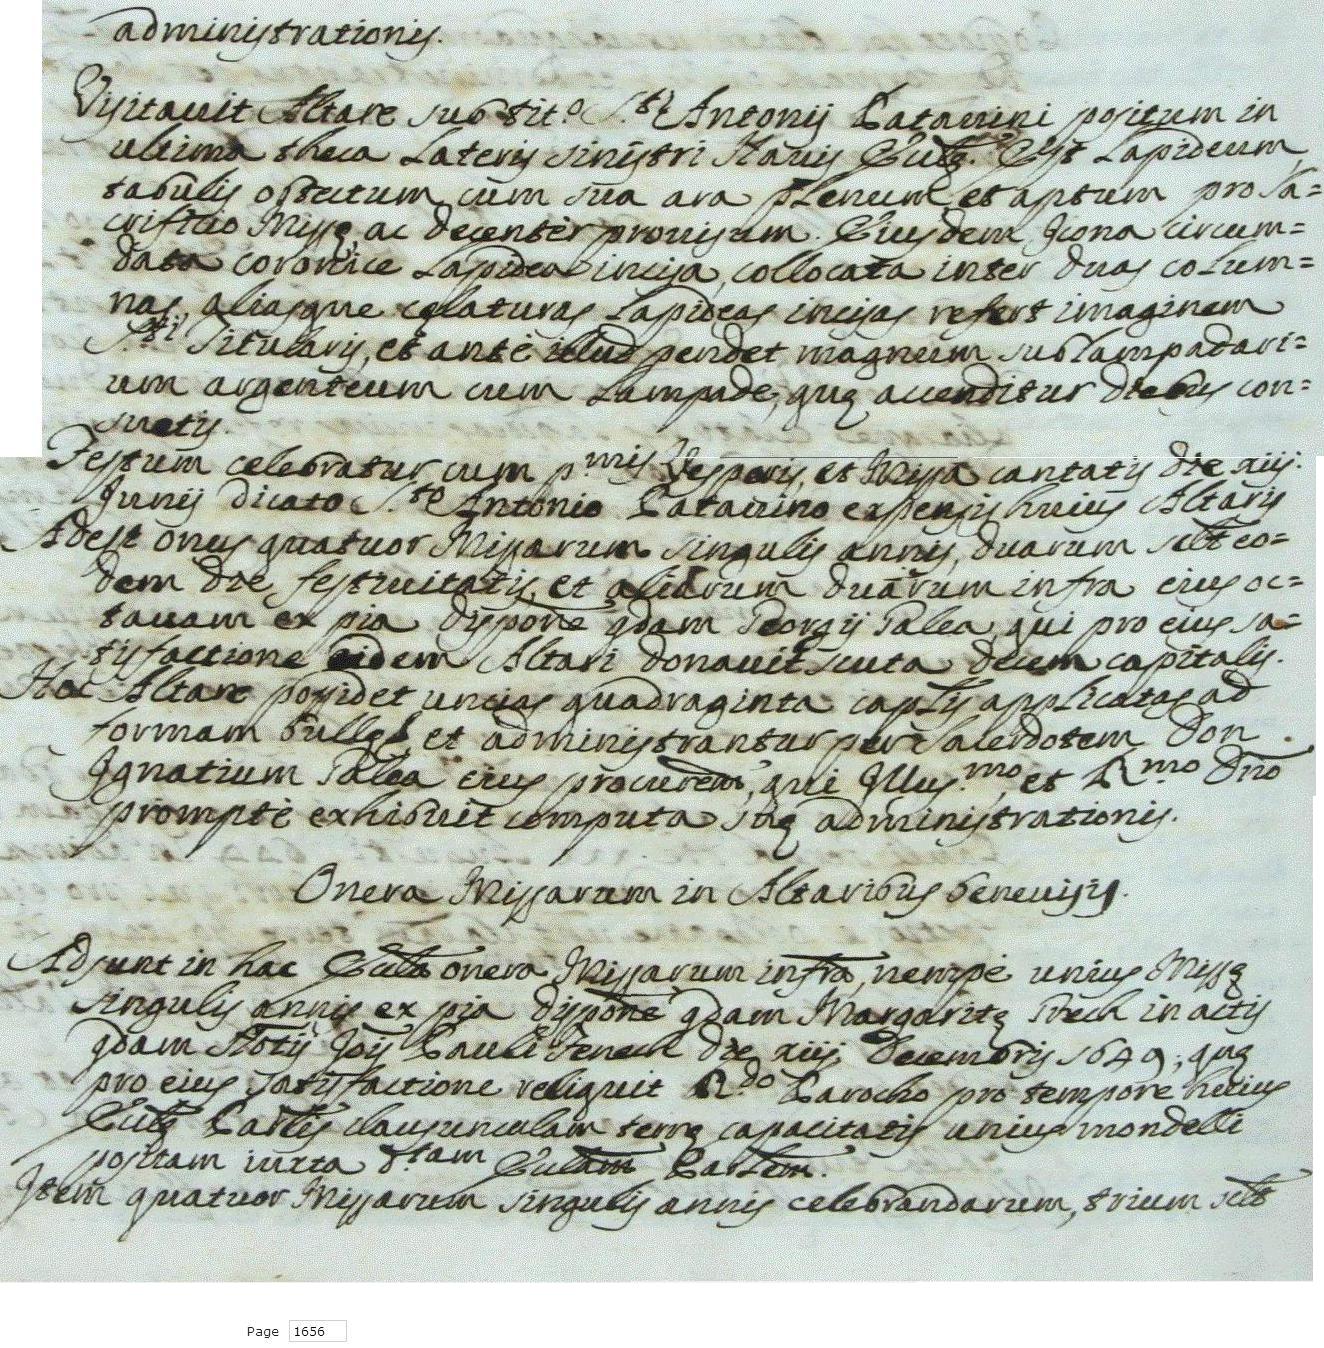 administrationis.
Visitavit Altare sub tit.o S.ti Antonij Patavini positum in
ultima theca Lateris sinistri Navis Ecclę. Est Lapideum,
tabulis obtectum cum sua ara plenum et aptum pro sa=
crificio Missę, ac decenter provisum. Eiusdem Icona circum=
data coronice Lapidea incisa, collocata inter duas colum=
nas, aliasque celaturas Lapideas incisas refert imaginem
S.ti Titularis, et ante illud pendet magnum sublampadari=
um argenteum cum Lampade, quę accenditur diebus con=
suetis.
Festum celebratur cum p.mis Vesperis, et Missa cantatis die xiij.
Junij dicato S.to Antonio Patavino expensis huius Altaris
Adest onus quatuor Missarum singulis annis, duarum scilt eo=
dem die festivitatis, et aliarum duarum infra eius oc=
tavam ex pia dispone qdam Georgij Palea, qui pro eius sa=
tisfactione eidem Altari donavit scuta decem capitalis.
Hoc Altare possidet uncias quadraginta capłis applicatas ad
formam Bullęs, et administrantur per Sacerdotem Don
Ignatium Palea eius procurem, qui Illus.mo, et R.mo Dno
promptè exhibuit computa suę administrationis.
Onera Missarum in Altaribus benevisis.
Adsunt in hac Eccła onera Missarum infra, nempè unius Missę
singulis annis ex pia dispone qdam Margaritę Grech in actis
qdam Notij Jois Pauli Fenech die xiij Decembris 1649, quę
pro eius satisfactione reliquit R.do Parocho pro tempore huius
Ecclę Parłis clausunculam terrę capacitatis unius mondelli
positam iuxta d.tam Ecclam Parlem.
Item quatuor Missarum singulis annis celebrandarum, trium scilt
Page 1656